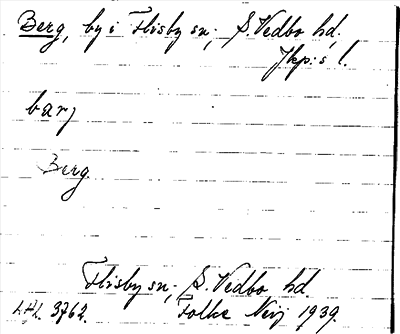 Berg, by i Flisby sn, S. Vedbo hd.
Jkp:s l.
barj
Berg.
Flisby sn, S. Vedbo hd.
3762. Folke 1939.